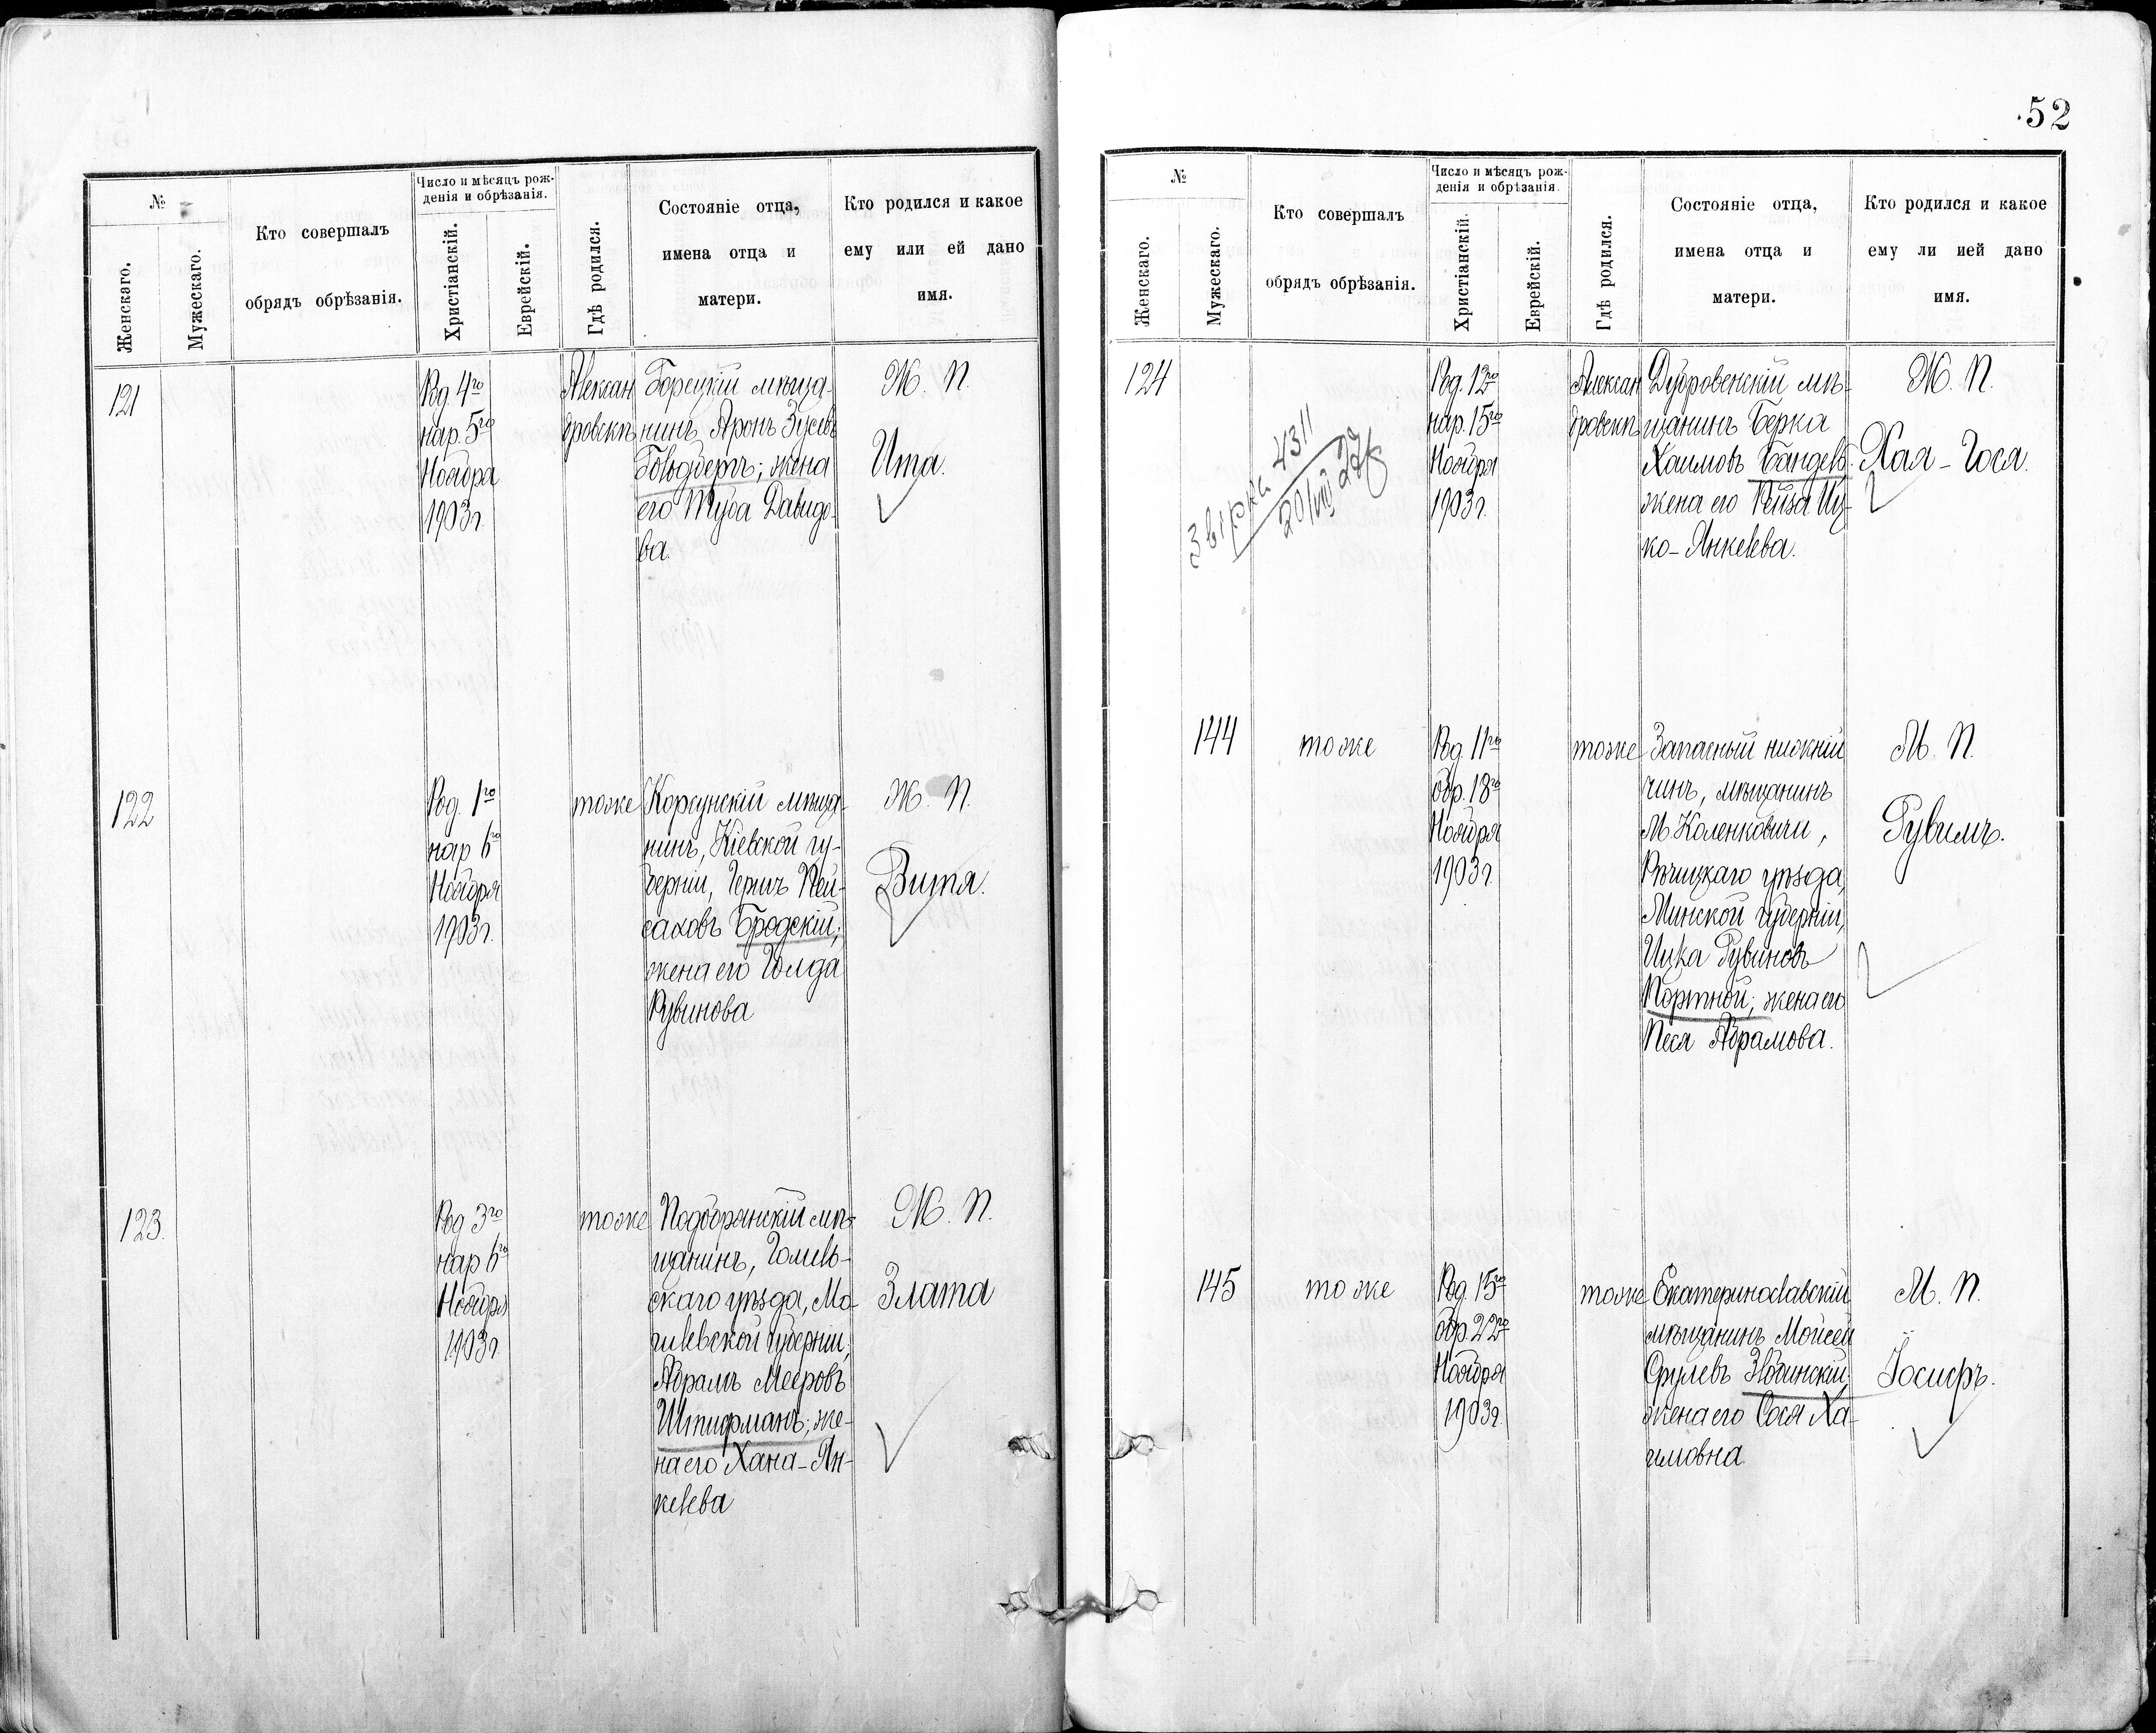 52
№
Женскаго.
Мужескаго.
Кто совершалъ
обрядъ обрѣзанія.
Число и мѣсяцъ рож-
денія и обрѣзанія.
Христіанскій.
Еврейскій.
Гдѣ родился.
Состояніе отца,
имена отца и
матери.
Кто родился и какое
ему или ей дано
имя.
121
Род. 4го
нар. 5го
Ноября
1903 г.
Алексан
дровскъ
Горецкій мѣща-
нинъ, Аронъ Зусевъ
жена
его Туба Давидо-
ва.
Ж. П.
Ита.
122
Род. 1го
нар 6го
Ноября
1903 г.
тоже
Корсунскій мѣща-
нинъ, Кіевской гу-
берніи, Гершъ Пей-
саховъ Бродскій;
жена его Голда
Рувинова
Ж. П.
Витя.
123.
Род 3го
нар 6го
Ноября
1903 г.
тоже
Подобрянскій мѣ-
щанинъ, Гомель-
скаго уѣзда, Мо-
гилевской губерніи,
Абрамъ Мееровъ
Штифманъ; же-
на его Хана-Ян-
келева
Ж. П.
Злата
№
Женскаго.
Мужескаго.
Кто совершалъ
обрядъ обрѣзанія.
Число и мѣсяцъ рож-
денія и обрѣзанія.
Христіанскій.
Еврейскій.
Гдѣ родился.
Состояніе отца,
имена отца и
матери.
Кто родился и какое
ему ли ией дано
имя.
124
Звірка 4311
20/VIII
Род. 12го
нар. 15го
Ноября
1903 г.
Алексан
дровскъ
Дубровенскій мѣ-
щанинъ Берка
Хаимовъ
жена его Рейза Иц-
ко-Янкелева.
Ж. П.
Хая-Гося.
144
тоже
Род. 11го
обр. 18го
Ноября
1903 г.
тоже
Запасный нижній
чинъ, мѣщанинъ
М. Коленковичи,
Рѣчицкаго уѣзда,
Минской губерніи,
Ицка Рувиновъ
Портной; жена его
Песя Абрамова.
М. П.
Рувимъ.
145
тоже
Род. 15го
обр. 22го
Ноября
1903 г.
тоже
Екатеринославскій
мѣщанинъ Мойсей
Срулевъ
жена его Сося Ха-
имовна.
М. П.
Іосифъ.